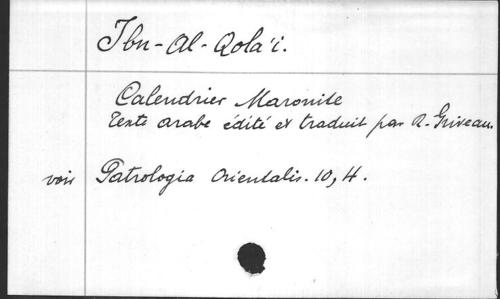 Ibn-Al-Qola'i.
Calendrier Maronite
Texte arabe édité et traduit par R. Griveau.
voir Patrologia Orientalis. 10, 4.